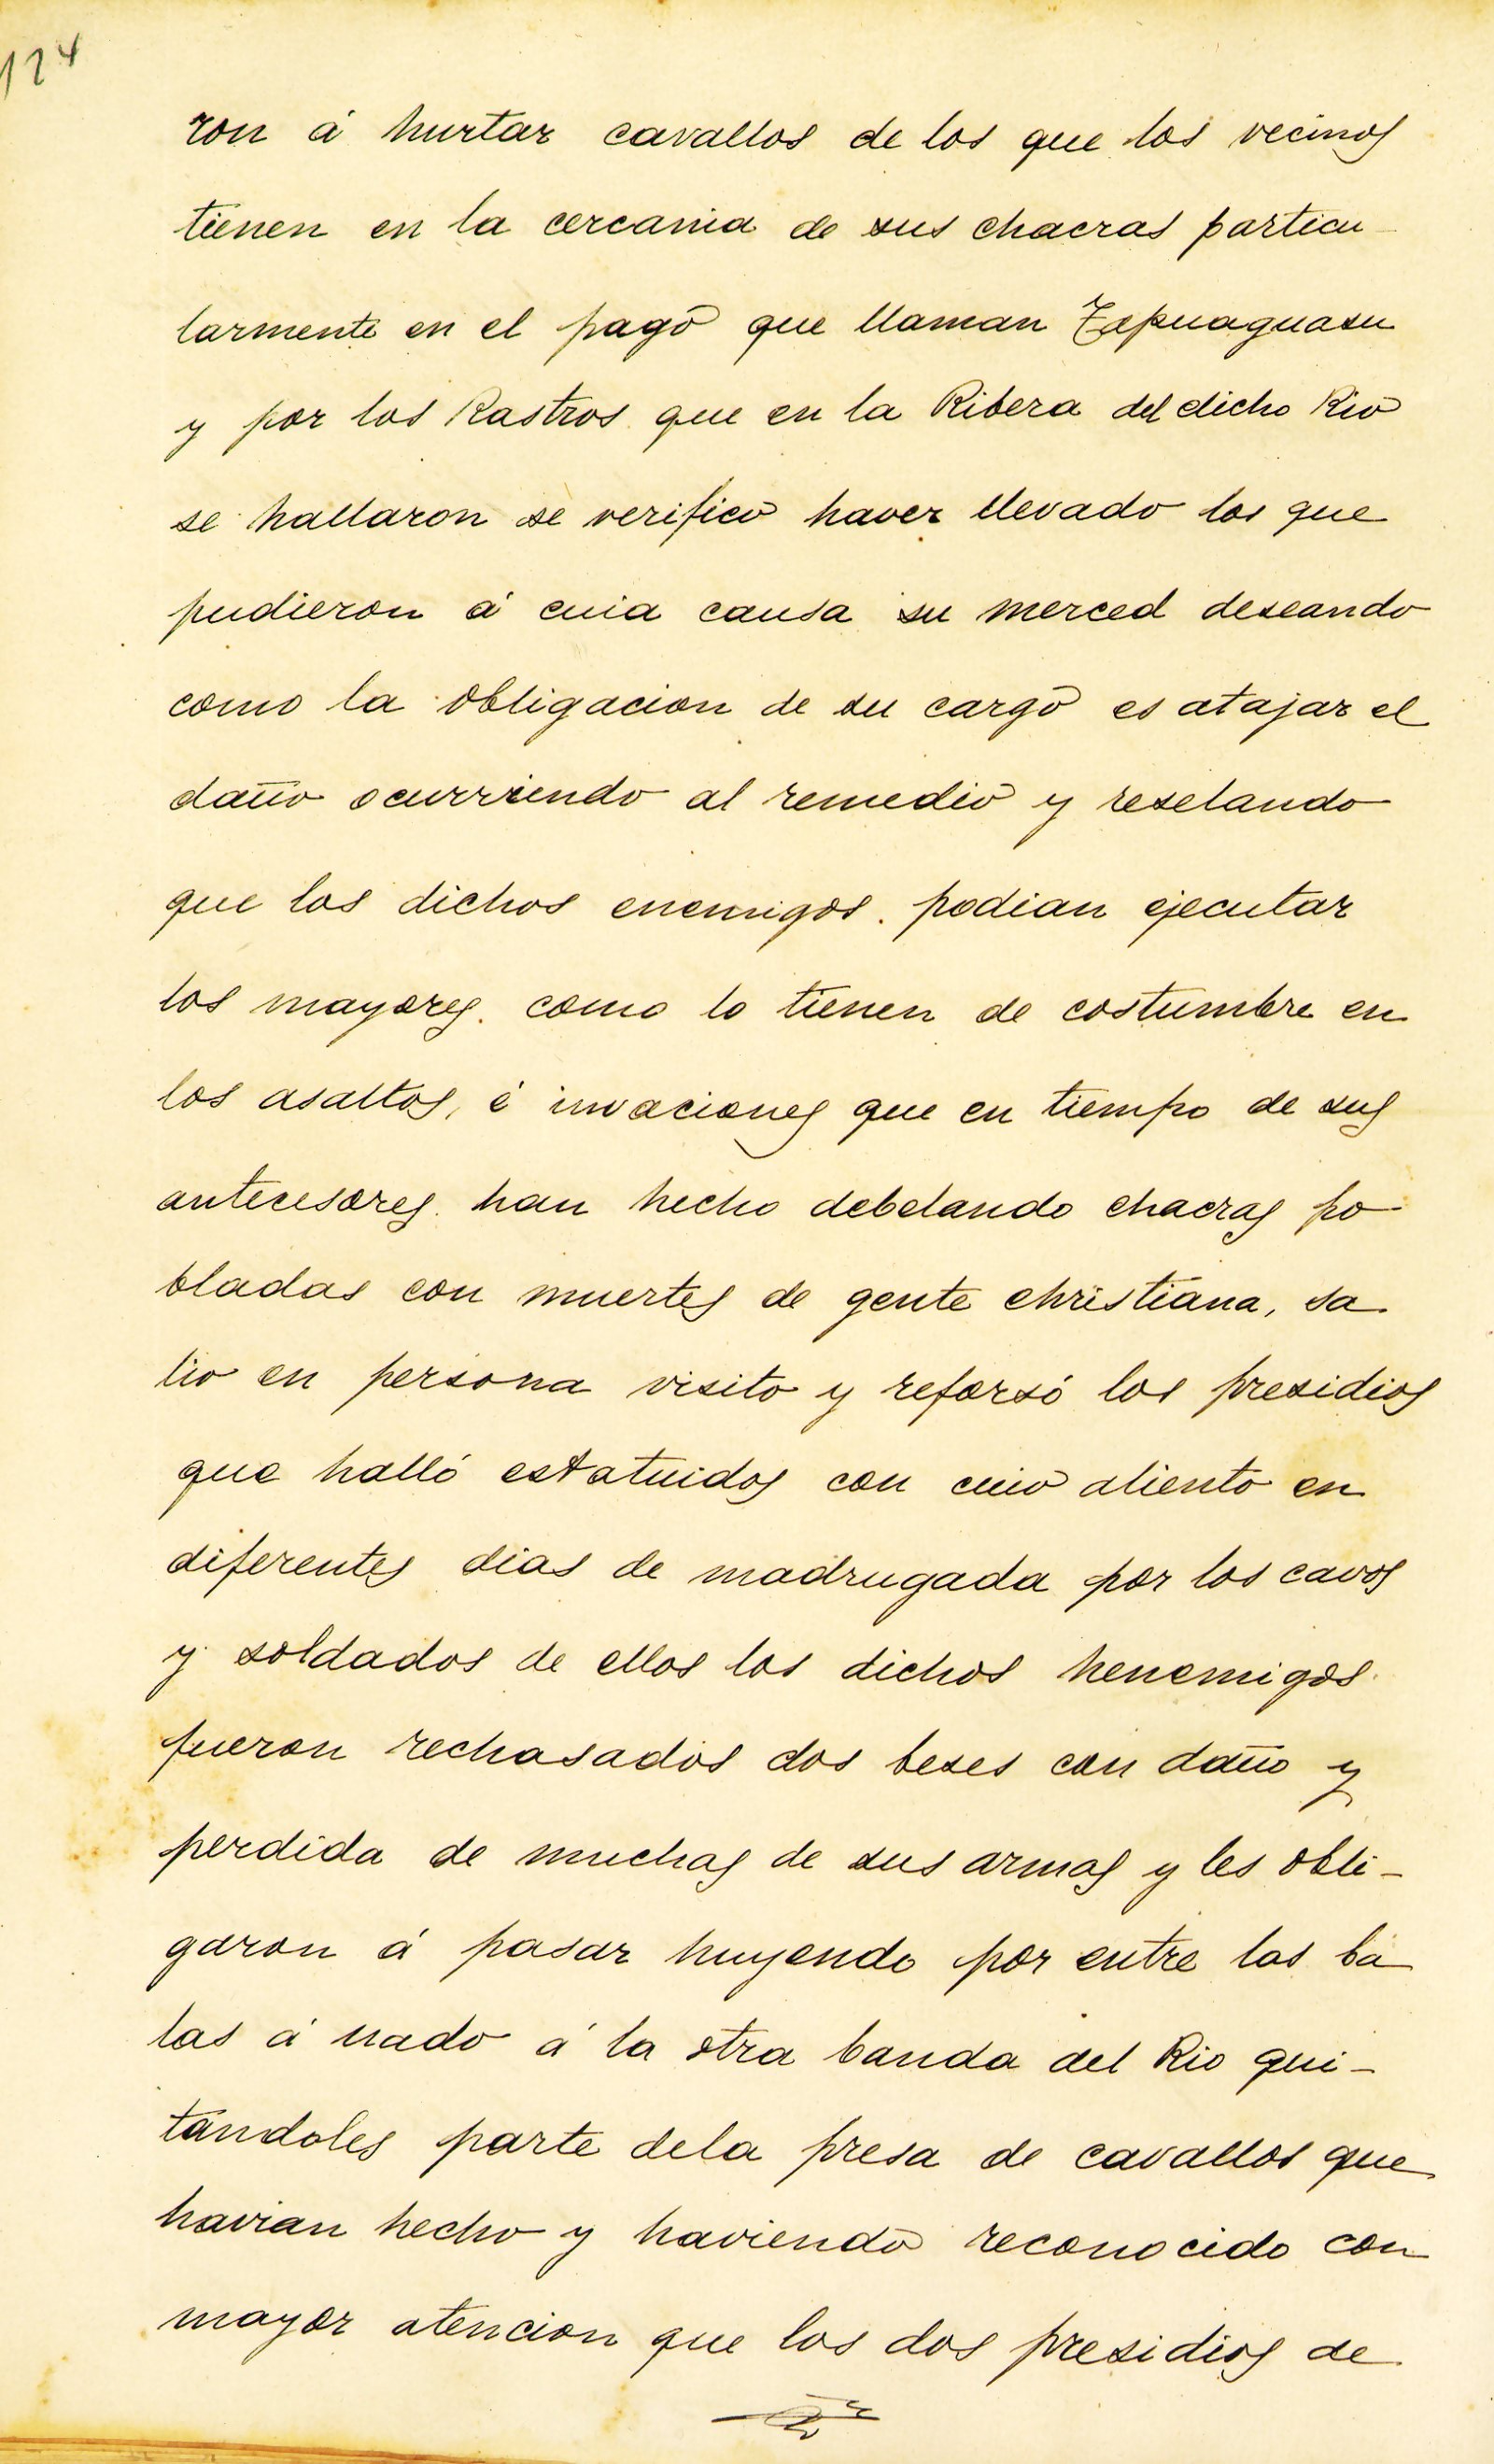 124
ron á hurtar cavallos de los que los vecinos
tienen en la cercania de sus chacras particu-
larmente en el pago que llaman Tapuaguasu
y por los Rastros que en la Ribera del dicho Rio
se hallaron se verifico haver llevado los que
pudieron á cuia causa su merced deseando
como la obligacion de su cargo es atajar el
daño ocurriendo al remedio y reselando
que los dichos enemigos podian ejecutar
los mayores como lo tienen de costumbre en
los asaltos, é invaciones que en tiempo de sus
antecesores han hecho debelando chacras po
bladas con muertes de gente christiana, sa
lio en persona visito y reforsó los presidios
que halló estatuidos con cuio aliento en
diferentes dias de madrugada por los cavos
y soldados de ellos los dichos henemigos
fueron rechasados dos beses con daño y
perdida de muchas de sus armas y les obli-
garon á pasar huyendo por entre las ba
las á nado á la otra banda del Rio qui-
tandoles parte dela presa de cavallos que
havian hecho y haviendo reconocido con
mayor atencion que los dos presidios de